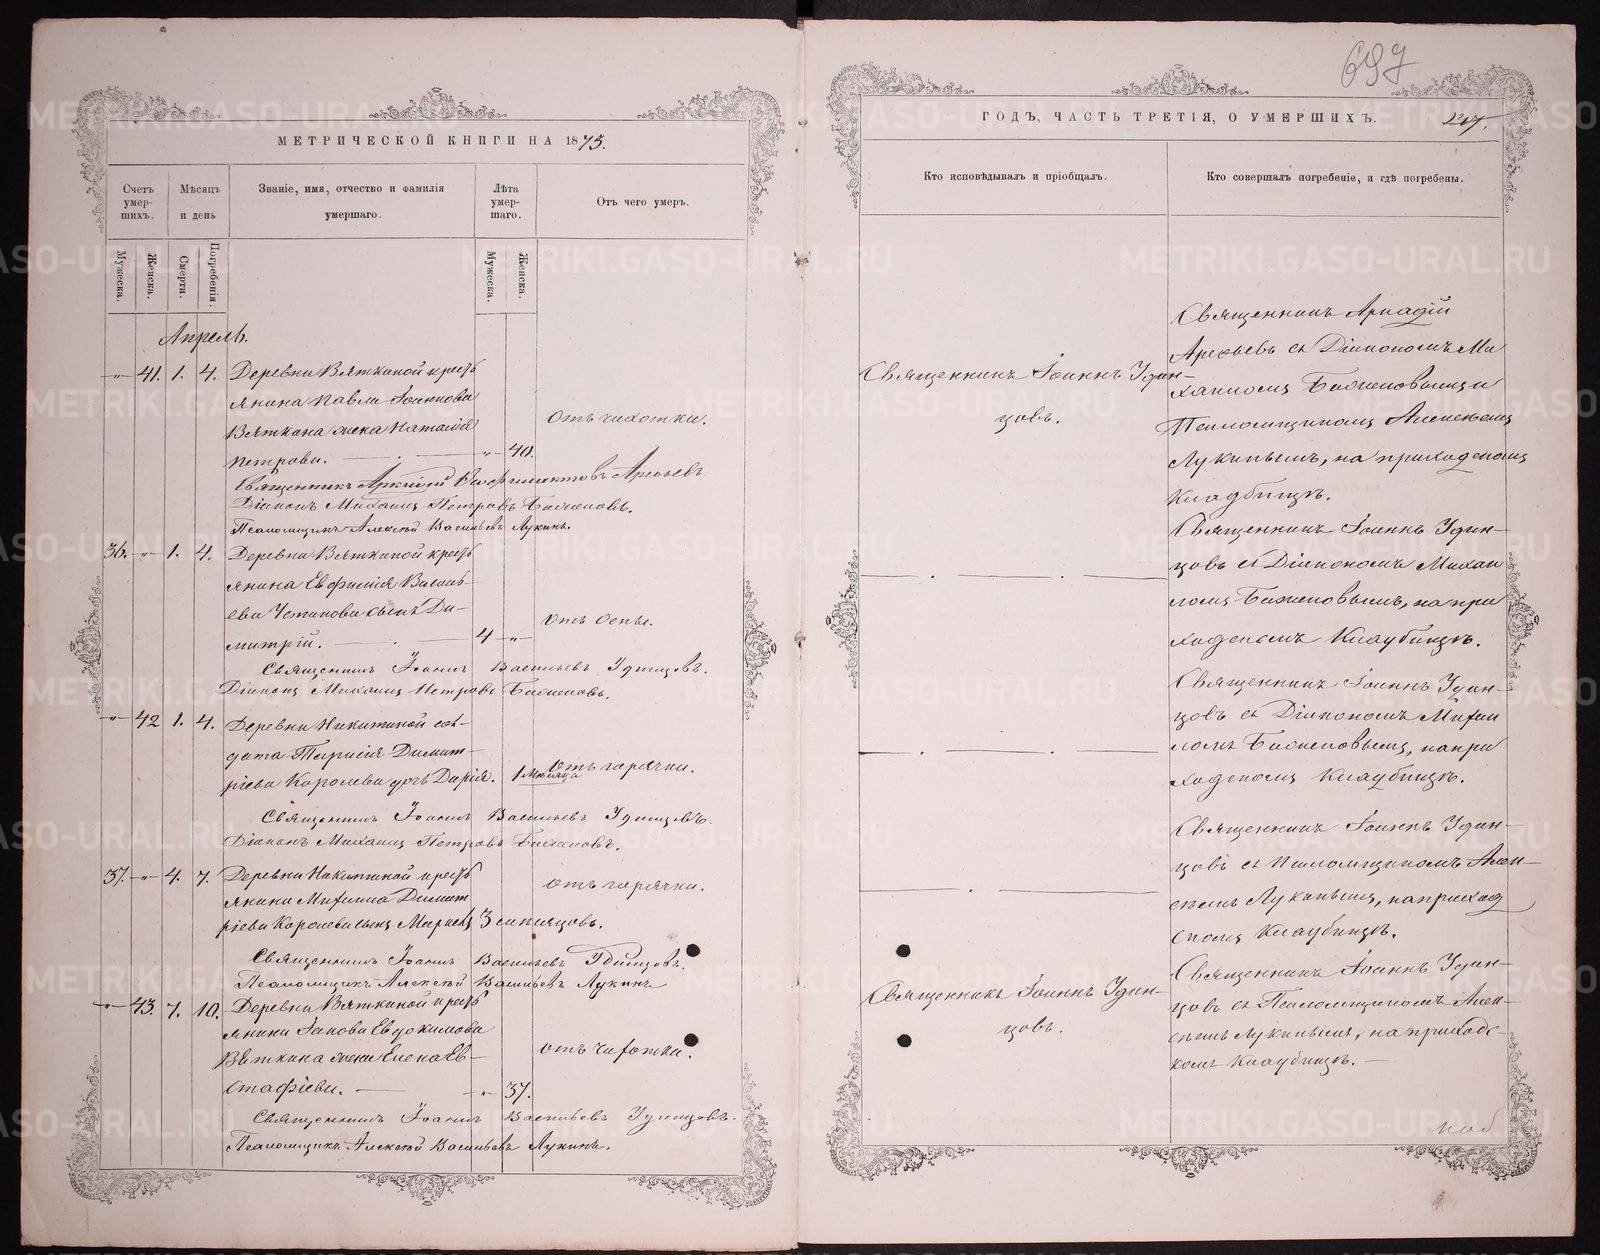 МЕТРИЧЕСКОЙ КНИГИ НА 1875.
Счетъ умер-шихъ.
Мѣсяцъ и день
Званіе, имя, отчество и фамилія умершаго.
Лѣта умер-шаго.
Отъ чего умеръ.
Мужеска.
Женска.
Смерти.
Погребенія.
Мужеска.
Женска.
Апрель.
-"- 41. 1. 4. Деревни Вяткиной кресть
янина Павла Іоаннова
Вяткина жена Наталія
Петрова. -"- 40.
отъ чахотки.
Священникъ Аркадій Арефьевъ
Діаконъ Михаилъ Петровъ Баженовъ.
Псаломщикъ Алексѣй Васильевъ Лукинъ.
36. -"- 1. 4. Деревни Вяткиной кресть
янина Евфимія Василь-
ева сынъ Ди-
митрій. 4 -"-
отъ оспы.
Священникъ Іоаннъ Васильевъ Удинцовъ.
Діаконъ Михаилъ Петровъ Баженовъ.
-"- 42 1. 4. Деревни Никитиной сол-
дата Тарасія Димит-
ріева Королева дочь Дарія. 1 мѣсяца
отъ горячки.
Священникъ Іоаннъ Васильевъ Удинцовъ.
Діаконъ Михаилъ Петровъ Баженовъ.
37. -"- 4. 7. Деревни Никитиной кресть
янина Михаила Димит
ріева Королева сынъ 3 мѣсяцовъ.
отъ горячки.
Священникъ Іоаннъ Васильевъ Удинцовъ.
Псаломщикъ Алексѣй Васильевъ Лукинъ
-"- 43. 7. 10. Деревни Вяткиной кресть
янина Іакова Евдокимова
Вяткина жена Елена Ев-
стафіева. -"- 37.
отъ чахотки.
Священникъ Іоаннъ Васильевъ Удинцовъ.
Псаломщикъ Алексѣй Васильевъ Лукинъ.
697
ГОДЪ, ЧАСТЬ ТРЕТІЯ, О УМЕРШИХЪ.
217.
Кто исповѣдывалъ и пріобщалъ.
Кто совершалъ погребеніе, и гдѣ погребены.
Священникъ Іоаннъ Удин-
цовъ.
Священникъ Аркадій
Арефьевъ съ Діакономъ Ми
хаиломъ Баженовымъ и
Псаломщикомъ Алексѣемъ
Лукинымъ, на приходскомъ
Кладбищѣ.
Священникъ Іоаннъ Удин-
цовъ съ Діакономъ Михаи
ломъ Баженовымъ, на при
ходскомъ Кладбищѣ.
Священникъ Іоаннъ Удин-
цовъ съ Діакономъ Михаи
ломъ Баженовымъ, на при
ходскомъ Кладбищѣ.
Священникъ Іоаннъ Удин-
цовъ съ Псаломщикомъ Алек-
сѣемъ Лукинымъ, на приход
скомъ Кладбищѣ.
Священникъ Іоаннъ Удин-
цовъ.
Священникъ Іоаннъ Удин-
цовъ съ Псаломщикомъ Алек-
сѣемъ Лукинымъ, на приходс-
комъ Кладбищѣ.
METRIKI.GASO-URAL.RU